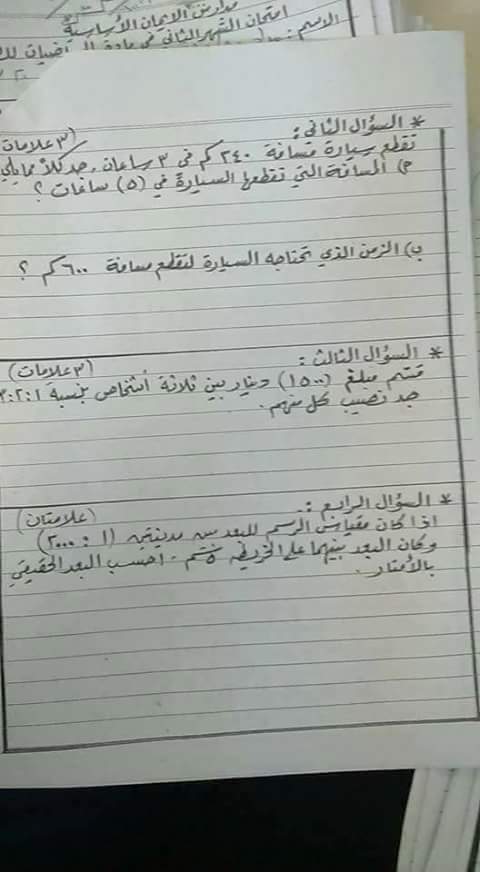 مدارس الايمان الأساسية
امتحان الشهر الثاني في مادة الرياضيات
الاسم:
* السؤال الثاني : (٣ علامات)
تقطع سيارة مسافة ٢٤٠ كم في ٣ ساعات ، جد كلاً مما يلي
أ) المسافة التي تقطعها السيارة في (٥) ساعات ؟
ب) الزمن الذي تحتاجه السيارة لتقطع مسافة ٦٠٠ كم ؟
* السؤال الثالث : (٣ علامات)
قسم مبلغ (١٥٠٠) دينار بين ثلاثة أشخاص بنسبة ١:٢:٣
جد نصيب كل منهم .
* السؤال الرابع : (علامتان)
اذا كان مقياس الرسم للبعد بين مدينتين (١ : ٢٠٠٠)
وكان البعد بينهما على الخريطة ٥ سم . احسب البعد الحقيقي
بالأمتار .